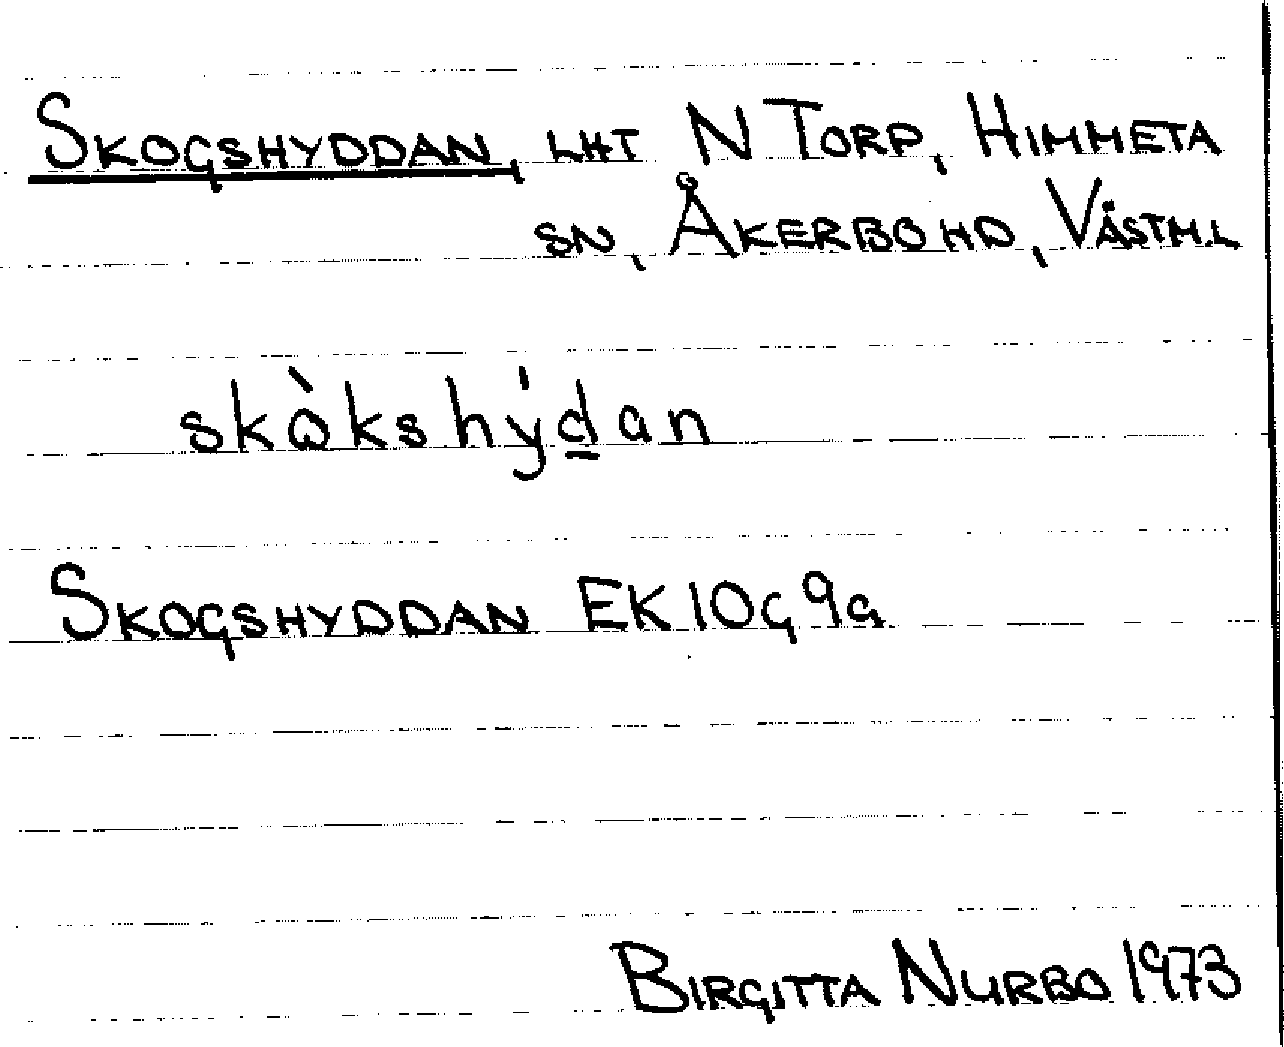 Skogshyddan, lht N Torp, Himmeta
sn, Åkerbo hd, Västm.l
skὼkshýd̲an
Skogshyddan EK 10G 9a
Birgitta Nurbo 1973